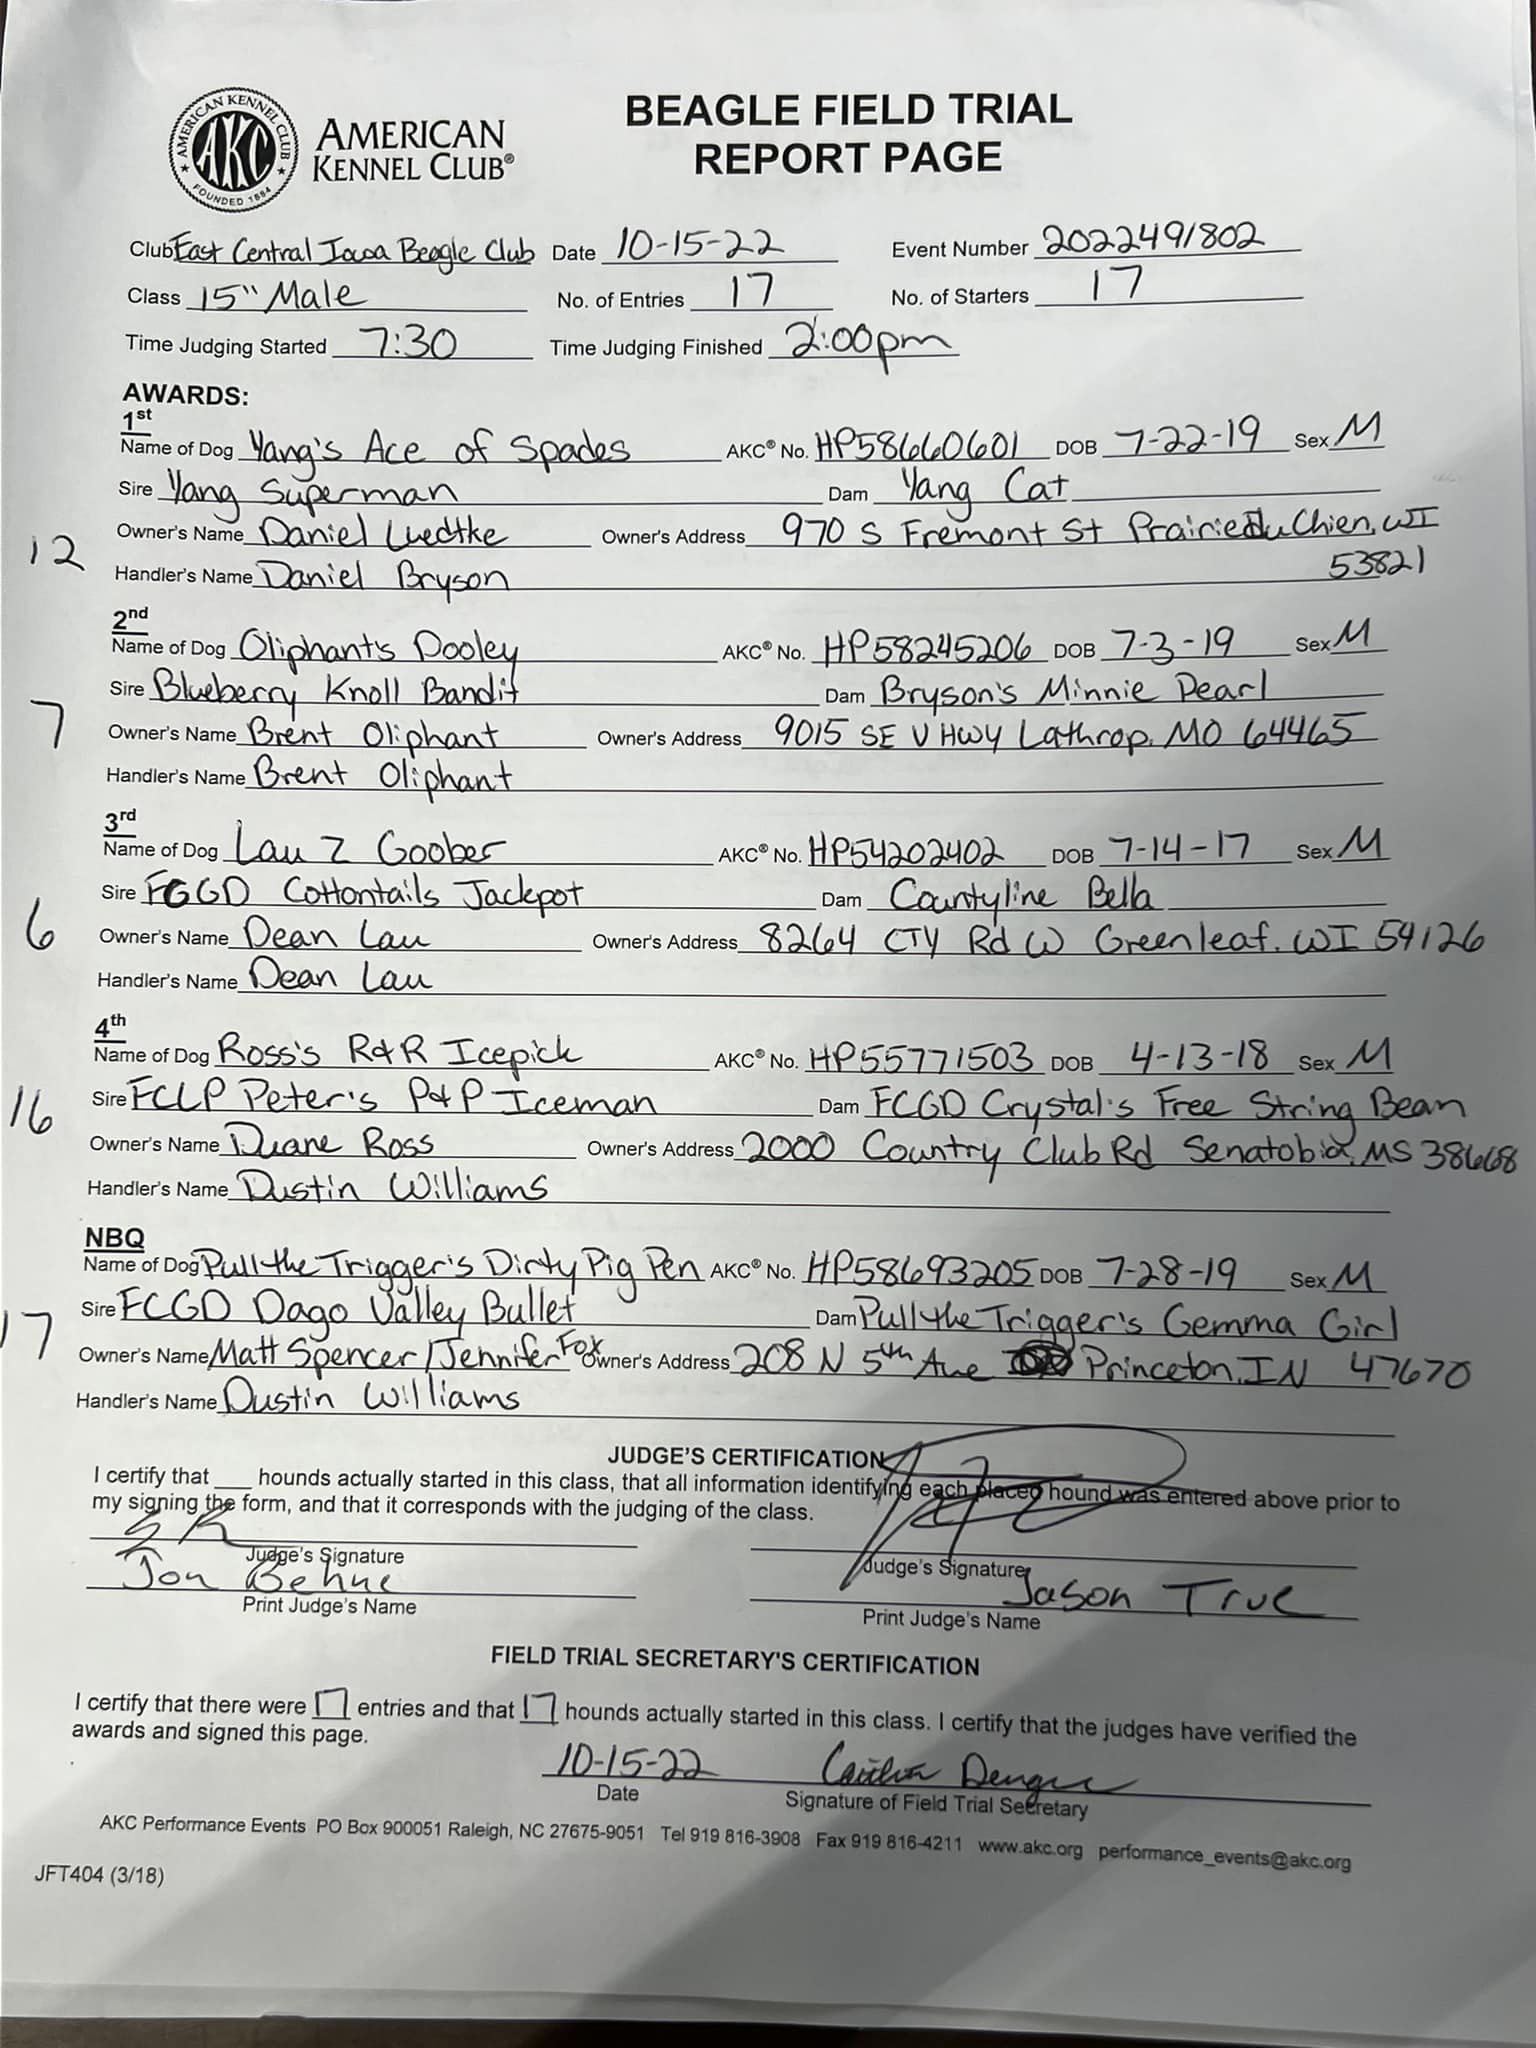 AMERICAN KENNEL CLUB
AKC
FOUNDED 1884
AMERICAN
KENNEL CLUB®
BEAGLE FIELD TRIAL
REPORT PAGE
Club East Central Iowa Beagle Club Date 10-15-22 Event Number 2022491802
Class 15" Male No. of Entries 17 No. of Starters 17
Time Judging Started 7:30 Time Judging Finished 2:00pm
AWARDS:
1st
Name of Dog Yang's Ace of Spades AKC® No. HP58660601 DOB 7-22-19 Sex M
Sire Yang Superman Dam Yang Cat
Owner's Name Daniel Luedtke Owner's Address 970 S Fremont St Prairie Du Chien, WI
12
Handler's Name Daniel Bryson 53821
2nd
Name of Dog Oliphant's Dooley AKC® No. HP58245206 DOB 7-3-19 Sex M
Sire Blueberry Knoll Bandit Dam Bryson's Minnie Pearl
7
Owner's Name Brent Oliphant Owner's Address 9015 SE V HWY Lathrop, MO 64465
Handler's Name Brent Oliphant
3rd
Name of Dog Lau Z Goober AKC® No. HP54202402 DOB 7-14-17 Sex M
Sire FCGD Cottontails Jackpot Dam Countyline Bella
6
Owner's Name Dean Lau Owner's Address 8264 CTY Rd W Greenleaf, WI 54126
Handler's Name Dean Lau
4th
Name of Dog Ross's R&R Icepick AKC® No. HP55771503 DOB 4-13-18 Sex M
Sire FCLP Peter's P&P Iceman Dam FCGD Crystal's Free String Bean
16
Owner's Name Duane Ross Owner's Address 2000 Country Club Rd Senatobia, MS 38668
Handler's Name Dustin Williams
NBQ
Name of Dog Pull the Trigger's Dirty Pig Pen AKC® No. HP58693205 DOB 7-28-19 Sex M
Sire FCGD Dago Valley Bullet Dam Pull the Trigger's Gemma Girl
17
Owner's Name Matt Spencer/Jennifer Fox Owner's Address 208 N 5th Ave Princeton, IN 47670
Handler's Name Dustin Williams
JUDGE'S CERTIFICATION
I certify that ___ hounds actually started in this class, that all information identifying each placed hound was entered above prior to
my signing the form, and that it corresponds with the judging of the class.
Judge's Signature Judge's Signature
Jon Behne Jason True
Print Judge's Name Print Judge's Name
FIELD TRIAL SECRETARY'S CERTIFICATION
I certify that there were 17 entries and that 17 hounds actually started in this class. I certify that the judges have verified the
awards and signed this page.
10-15-22
Date Signature of Field Trial Secretary
AKC Performance Events PO Box 900051 Raleigh, NC 27675-9051 Tel 919 816-3908 Fax 919 816-4211 www.akc.org performance_events@akc.org
JFT404 (3/18)